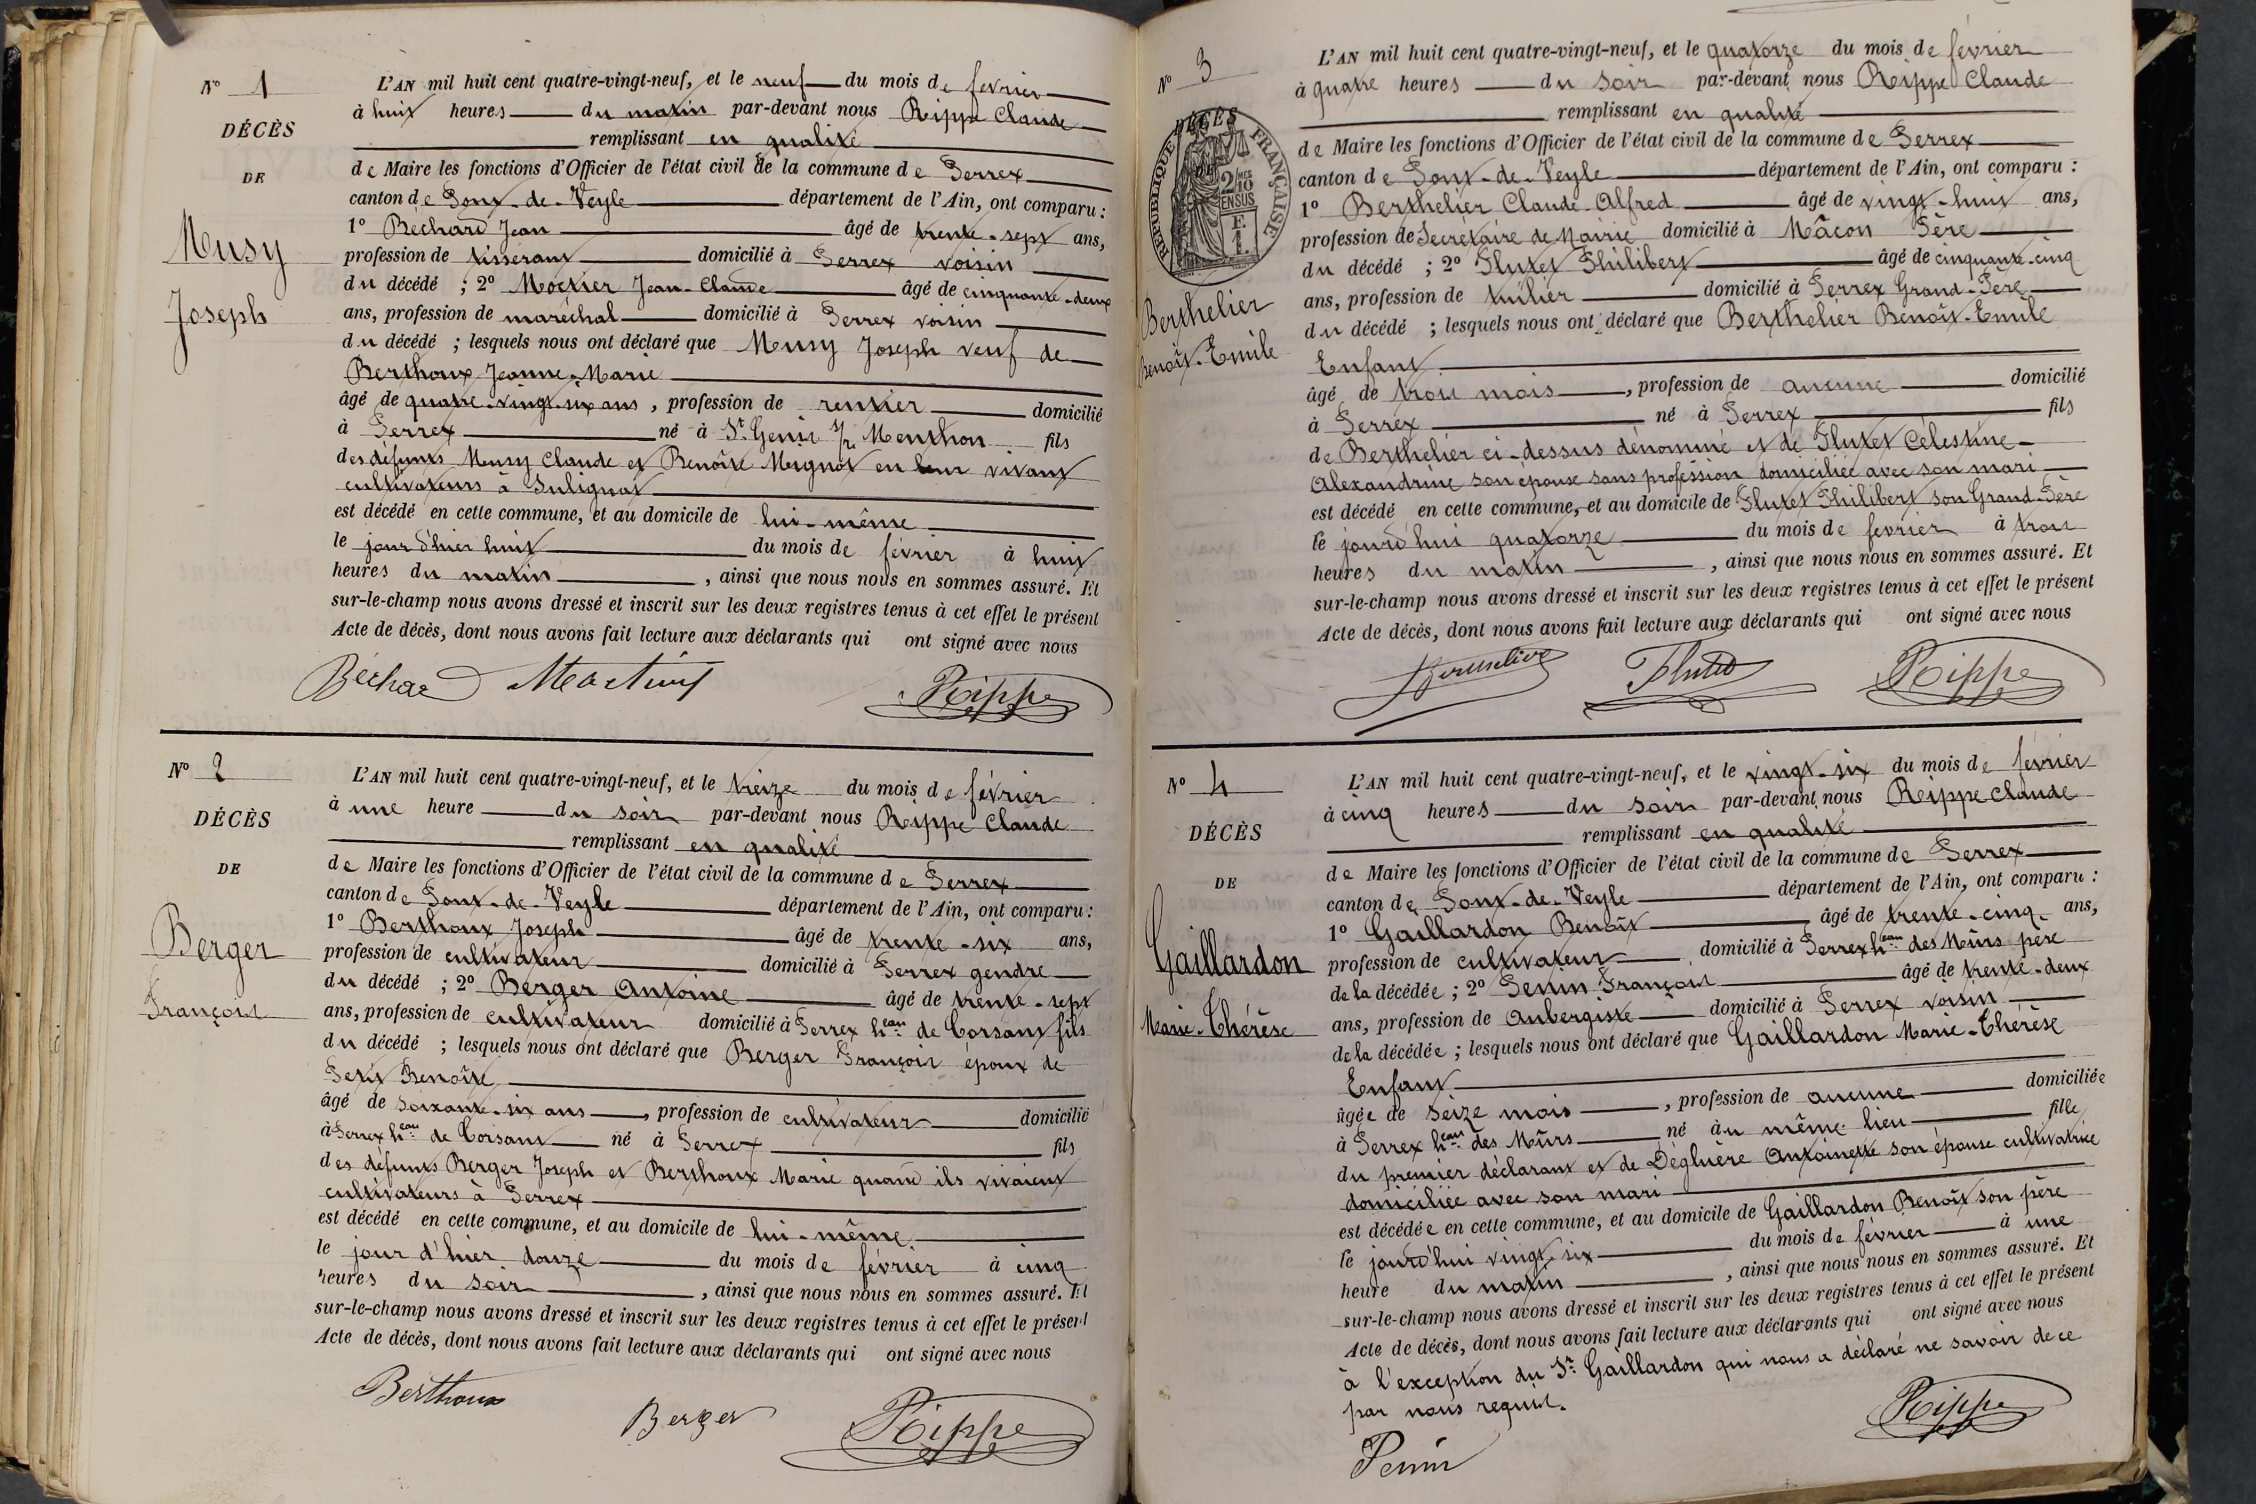 N° 1
DÉCÈS
DE
Musy
Joseph
L'AN mil huit cent quatre-vingt-neuf, et le neuf du mois de février
à huit heures du matin par-devant nous Rippe Claude
remplissant en qualité
de Maire les fonctions d'Officier de l'état civil de la commune de Perrex
canton de Pont-de-Veyle département de l'Ain, ont comparu :
1° Béchard Jean âgé de trente-sept ans,
profession de tisserant domicilié à Perrex voisin
du décédé ; 2° Jean-Claude âgé de cinquante-deux
ans, profession de maréchal domicilié à Perrex voisin
du décédé ; lesquels nous ont déclaré que Musy Joseph veuf de
Berthoux Jeanne-Marie
âgé de quatre-vingt-six ans, profession de rentier domicilié
à Perrex né à St. Genis s/r Menthon fils
des défunts Musy Claude et Benoîte Mugnot en leur vivant
cultivateurs à Sulignat
est décédé en cette commune, et au domicile de lui-même
le jour d'hier huit du mois de février à huit
heures du matin, ainsi que nous nous en sommes assuré. Et
sur-le-champ nous avons dressé et inscrit sur les deux registres tenus à cet effet le présent
Acte de décès, dont nous avons fait lecture aux déclarants qui ont signé avec nous
Béchard Rippe
N° 2
DÉCÈS
DE
Berger
François
L'AN mil huit cent quatre-vingt-neuf, et le treize du mois de février
à une heure du soir par-devant nous Rippe Claude
remplissant en qualité
de Maire les fonctions d'Officier de l'état civil de la commune de Perrex
canton de Pont-de-Veyle département de l'Ain, ont comparu :
1° Berthoux Joseph âgé de trente-six ans,
profession de cultivateur domicilié à Perrex gendre
du décédé ; 2° Berger Antoine âgé de trente-sept
ans, profession de cultivateur domicilié à Perrex heau de Corsant fils
du décédé ; lesquels nous ont déclaré que Berger François époux de
Petit Benoîte
âgé de soixante-six ans, profession de cultivateur domicilié
à Perrex heau de Corsant né à Perrex fils
des défunts Berger Joseph et Berthoux Marie quand ils vivaient
cultivateurs à Perrex
est décédé en cette commune, et au domicile de lui-même
le jour d'hier douze du mois de février à cinq
heures du soir, ainsi que nous nous en sommes assuré. Et
sur-le-champ nous avons dressé et inscrit sur les deux registres tenus à cet effet le présent
Acte de décès, dont nous avons fait lecture aux déclarants qui ont signé avec nous
Berthoux
Berger Rippe
N° 3
DÉCÈS
RÉPUBLIQUE FRANÇAISE
2 MES 10 EN SUS
Berthelier
Benoît-Emile
L'AN mil huit cent quatre-vingt-neuf, et le quatorze du mois de février
à quatre heures du soir par-devant nous Rippe Claude
remplissant en qualité
de Maire les fonctions d'Officier de l'état civil de la commune de Perrex
canton de Pont-de-Veyle département de l'Ain, ont comparu :
1° Berthelier Claude-Alfred âgé de vingt-huit ans,
profession de Secrétaire de Mairie domicilié à Mâcon Père
du décédé ; 2° Flutet Philibert âgé de cinquante-cinq
ans, profession de tuilier domicilié à Perrex Grand-Père
du décédé ; lesquels nous ont déclaré que Berthelier Benoît-Emile
Enfant
âgé de trois mois, profession de aucune domicilié
à Perrex né à Perrex fils
de Berthelier ci-dessus dénommé et de Flutet Célestine-
Alexandrine son épouse sans profession domiciliée avec son mari
est décédé en cette commune, et au domicile de Flutet Philibert son Grand-Père
le jourd'hui quatorze du mois de février à trois
heures du matin, ainsi que nous nous en sommes assuré. Et
sur-le-champ nous avons dressé et inscrit sur les deux registres tenus à cet effet le présent
Acte de décès, dont nous avons fait lecture aux déclarants qui ont signé avec nous
Flutet Rippe
N° 4
DÉCÈS
DE
Gaillardon
Marie-Thérèse
L'AN mil huit cent quatre-vingt-neuf, et le vingt-six du mois de février
à cinq heures du soir par-devant nous Rippe Claude
remplissant en qualité
de Maire les fonctions d'Officier de l'état civil de la commune de Perrex
canton de Pont-de-Veyle département de l'Ain, ont comparu :
1° Gaillardon Benoît âgé de trente-cinq ans,
profession de cultivateur domicilié à Perrex heau des Mûrs père
de la décédée ; 2° Penin François âgé de trente-deux
ans, profession de Aubergiste domicilié à Perrex voisin
de la décédée ; lesquels nous ont déclaré que Gaillardon Marie-Thérèse
Enfant
âgée de seize mois, profession de aucune domiciliée
à Perrex heau des Mûrs né au même lieu fille
du premier déclarant et de Dégluère Antoinette son épouse cultivatrice
domiciliée avec son mari
est décédée en cette commune, et au domicile de Gaillardon Benoît son père
le jourd'hui vingt-six du mois de février à une
heure du matin, ainsi que nous nous en sommes assuré. Et
sur-le-champ nous avons dressé et inscrit sur les deux registres tenus à cet effet le présent
Acte de décès, dont nous avons fait lecture aux déclarants qui ont signé avec nous
à l'exception du Sr. Gaillardon qui nous a déclaré ne savoir de ce
par nous requis.
Penin Rippe